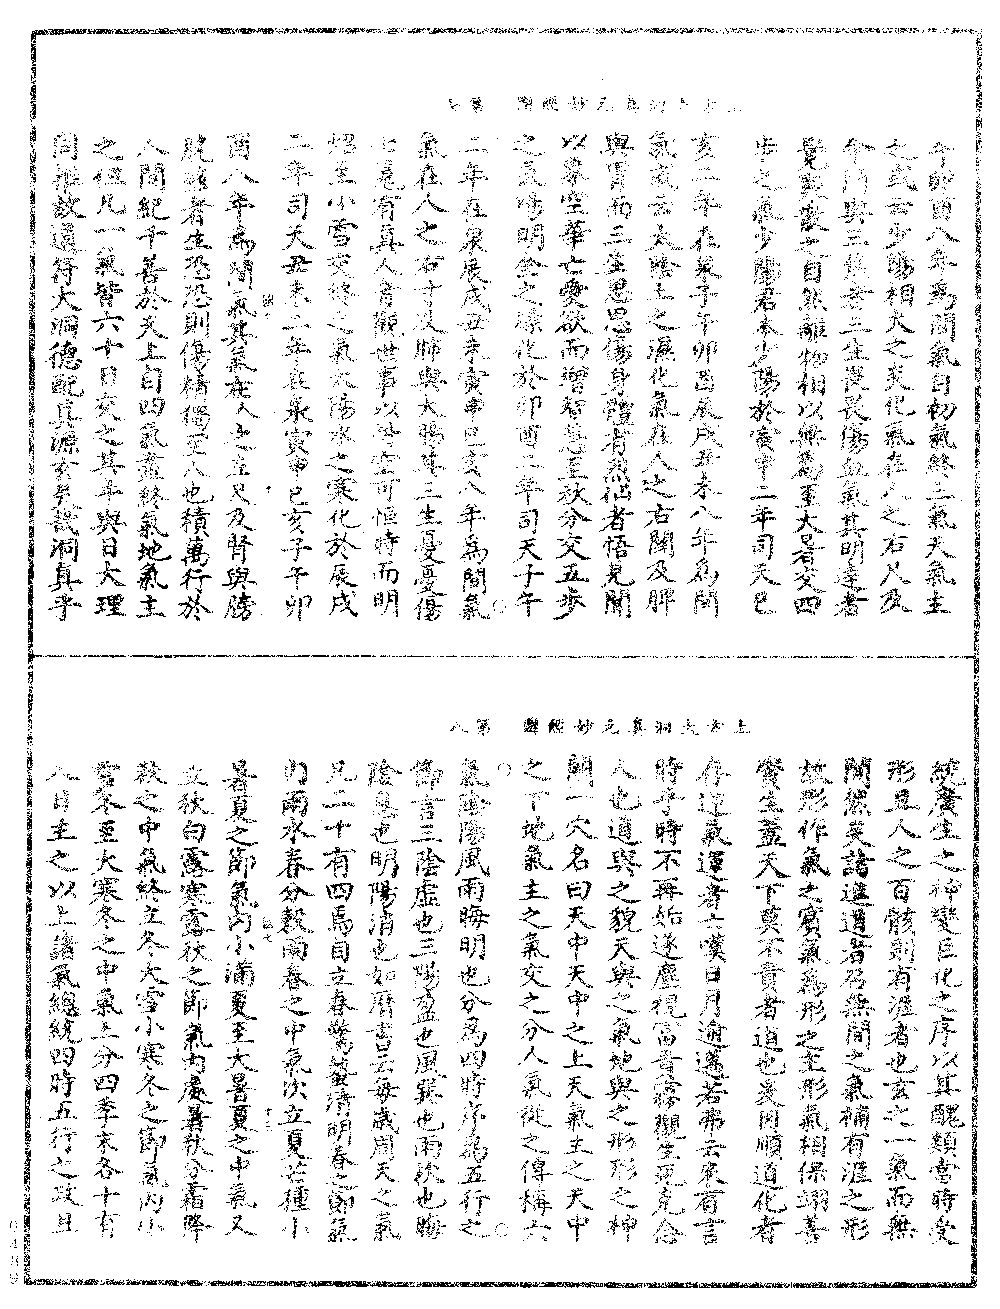 上方大洞真元妙經圖　第七
子卯酉八年爲間氣自初氣終三氣天氣主
之或云少陽相火之炎化氣在人之右尺及
命門與三焦玄三生畏畏傷血氣其明達者
覺變數之自然離物相以無爲至大暑交四
步之氣少陽君火少陽於寅申二年司天巳
亥二年在泉子午卯酉辰戌丑未八年爲間
氣或云太陰土之濕化氣在人之右關及脾
與胃而三笙思思傷身體有烈仙者悟見聞
以尋空華亡愛欲而增智慧至秋分交五步
之氣陽明金之燥化於卯酉二年司天子午
二年在泉辰戌丑未寅申巳亥八年爲間氣
氣在人之右寸及肺與大腸其三生憂憂傷
七竟有真人者觀世事以皆空可恒時而明
炤至小雪交終之氣太陽水之寒化於辰戌
二年司天丑未二年在泉寅申巳亥子午卯
酉八年爲間氣其氣在人之左尺及腎與膀
胱該者生恐恐則傷精獨至人也積萬行於
人間紀千善於天上自四氣蓋終氣地氣主
之但凡一氣皆六十日交之其年與日大理
同推故道符大洞德配真源玄氣該洞真孕
上方大洞真元妙經圖　第八
統廣生之神變巨化之序以其醜類當時受
形且人之百骸則有涯者也玄之一氣而無
間然矣諸進道者召無間之氣補有涯之形
故形作氣之實氣爲形之主形氣相保翊善
實生蓋天下莫不貴者道也是因順道化者
存逆氣運者亡嘆日月逾邁若弗云來有言
時乎時不再始逐塵視富音修觀生死克念
人也道與之貌天與之氣地與之形形之神
關一穴名曰天中天中之上天氣主之天中
之下地氣主之氣交之分人氣從之傳稱六
氣陰陽風雨晦明也分爲四時序爲五行之
節言三陰虛也三陽盈也風巽也雨欽也晦
陰息也明陽消也如曆書云每歲周天之氣
凡二十有四焉自立春驚蟄清明春之節氣
內雨水春分穀雨春之中氣次立夏芒種小
暑夏之節氣內小滿夏至大暑夏之中氣又
立秋白露寒露秋之節氣內處暑秋分霜降
秋之中氣終立冬大雪小寒冬之節氣內小
雪冬至大寒冬之中氣三分四季末各十有
八日主之以上諸氣總統四時五行之政且